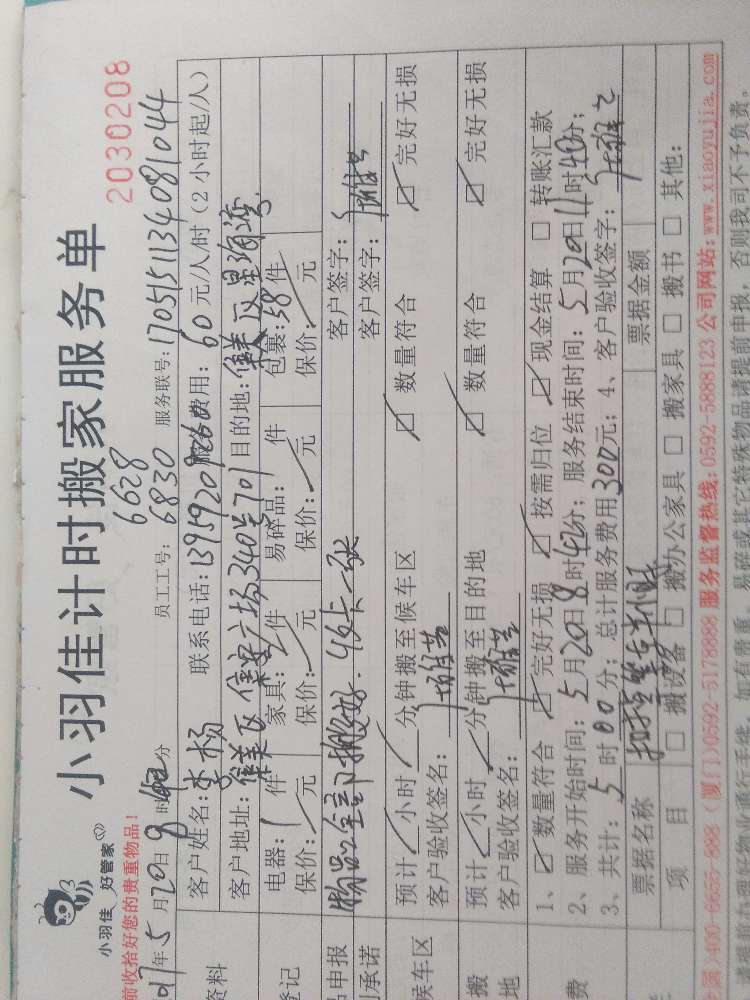 小羽佳计时搬家服务单
小羽佳 好管家
2030208
前收拾好您的贵重物品!
6628
2017年5月20日8时42分 员工工号: 6830 服务联号: 1705151134081044
资料 客户姓名: 李杨 联系电话: 服务费用: 60元/人/时 (2小时起/人)
客户地址: 集美区 340号701 目的地: 集美区
登记 电器: 1件 家具: 件 易碎品: 件 包裹: 58件
保价: 元 保价: 元 保价: 元 保价: 元
品申报 物品已全部搬好. 一张 客户签字:
承诺 客户签字:
候车区 预计 小时 分钟搬至候车区 ☑ 数量符合 ☑ 完好无损
客户验收签名:
搬 预计 小时 分钟搬至目的地 ☑ 数量符合 ☑ 完好无损
地 客户验收签名:
1、☑ 数量符合 ☑ 完好无损 ☑ 按需归位 ☑ 现金结算 □ 转账汇款
费 2、服务开始时间: 5月20日8时42分; 服务结束时间: 5月20日11时42分;
3、共计: 5时00分; 总计服务费用300元; 4、客户验收签字:
票据名称 票据金额
项 目 □ 搬设备 □ 搬办公家具 □ 搬家具 □ 搬书 □ 其他:
400-6655-888 (厦门)0592-5178888 服务监督热线: 0592-5888123 公司网站: www.xiaoyujia.com
者提前办理好物业通行手续, 如有贵重、易碎或其它特殊物品请提前申报, 否则我司不予负责。